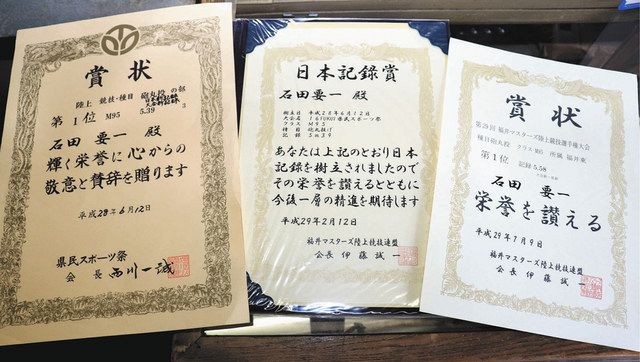 賞状
陸上 競技・種目 砲丸投 の部
日本新記録
大会新記録
第1位 M95 5.39
石田 要一 殿
輝く栄誉に心からの
敬意と賛辞を贈ります
平成28年6月12日
県民スポーツ祭
会長 西川一誠
日本記録賞
石田要一 殿
樹立日 平成28年6月12日
大会名 16FUKUI県民スポーツ祭
クラス M95
種目 砲丸投げ
記録 5m39
あなたは上記のとおり日本
記録を樹立されましたので
その栄誉を讃えるとともに
今後一層の精進を期待します
平成29年2月12日
福井マスターズ陸上競技連盟
会長 伊藤誠一
賞状
第29回 福井マスターズ陸上競技選手権大会
種目砲丸投 クラス M95 所属 福井東
第1位 記録 5.58
石田 要一
栄誉を讃える
平成29年7月9日
福井マスターズ陸上競技連盟
会長 伊藤誠一